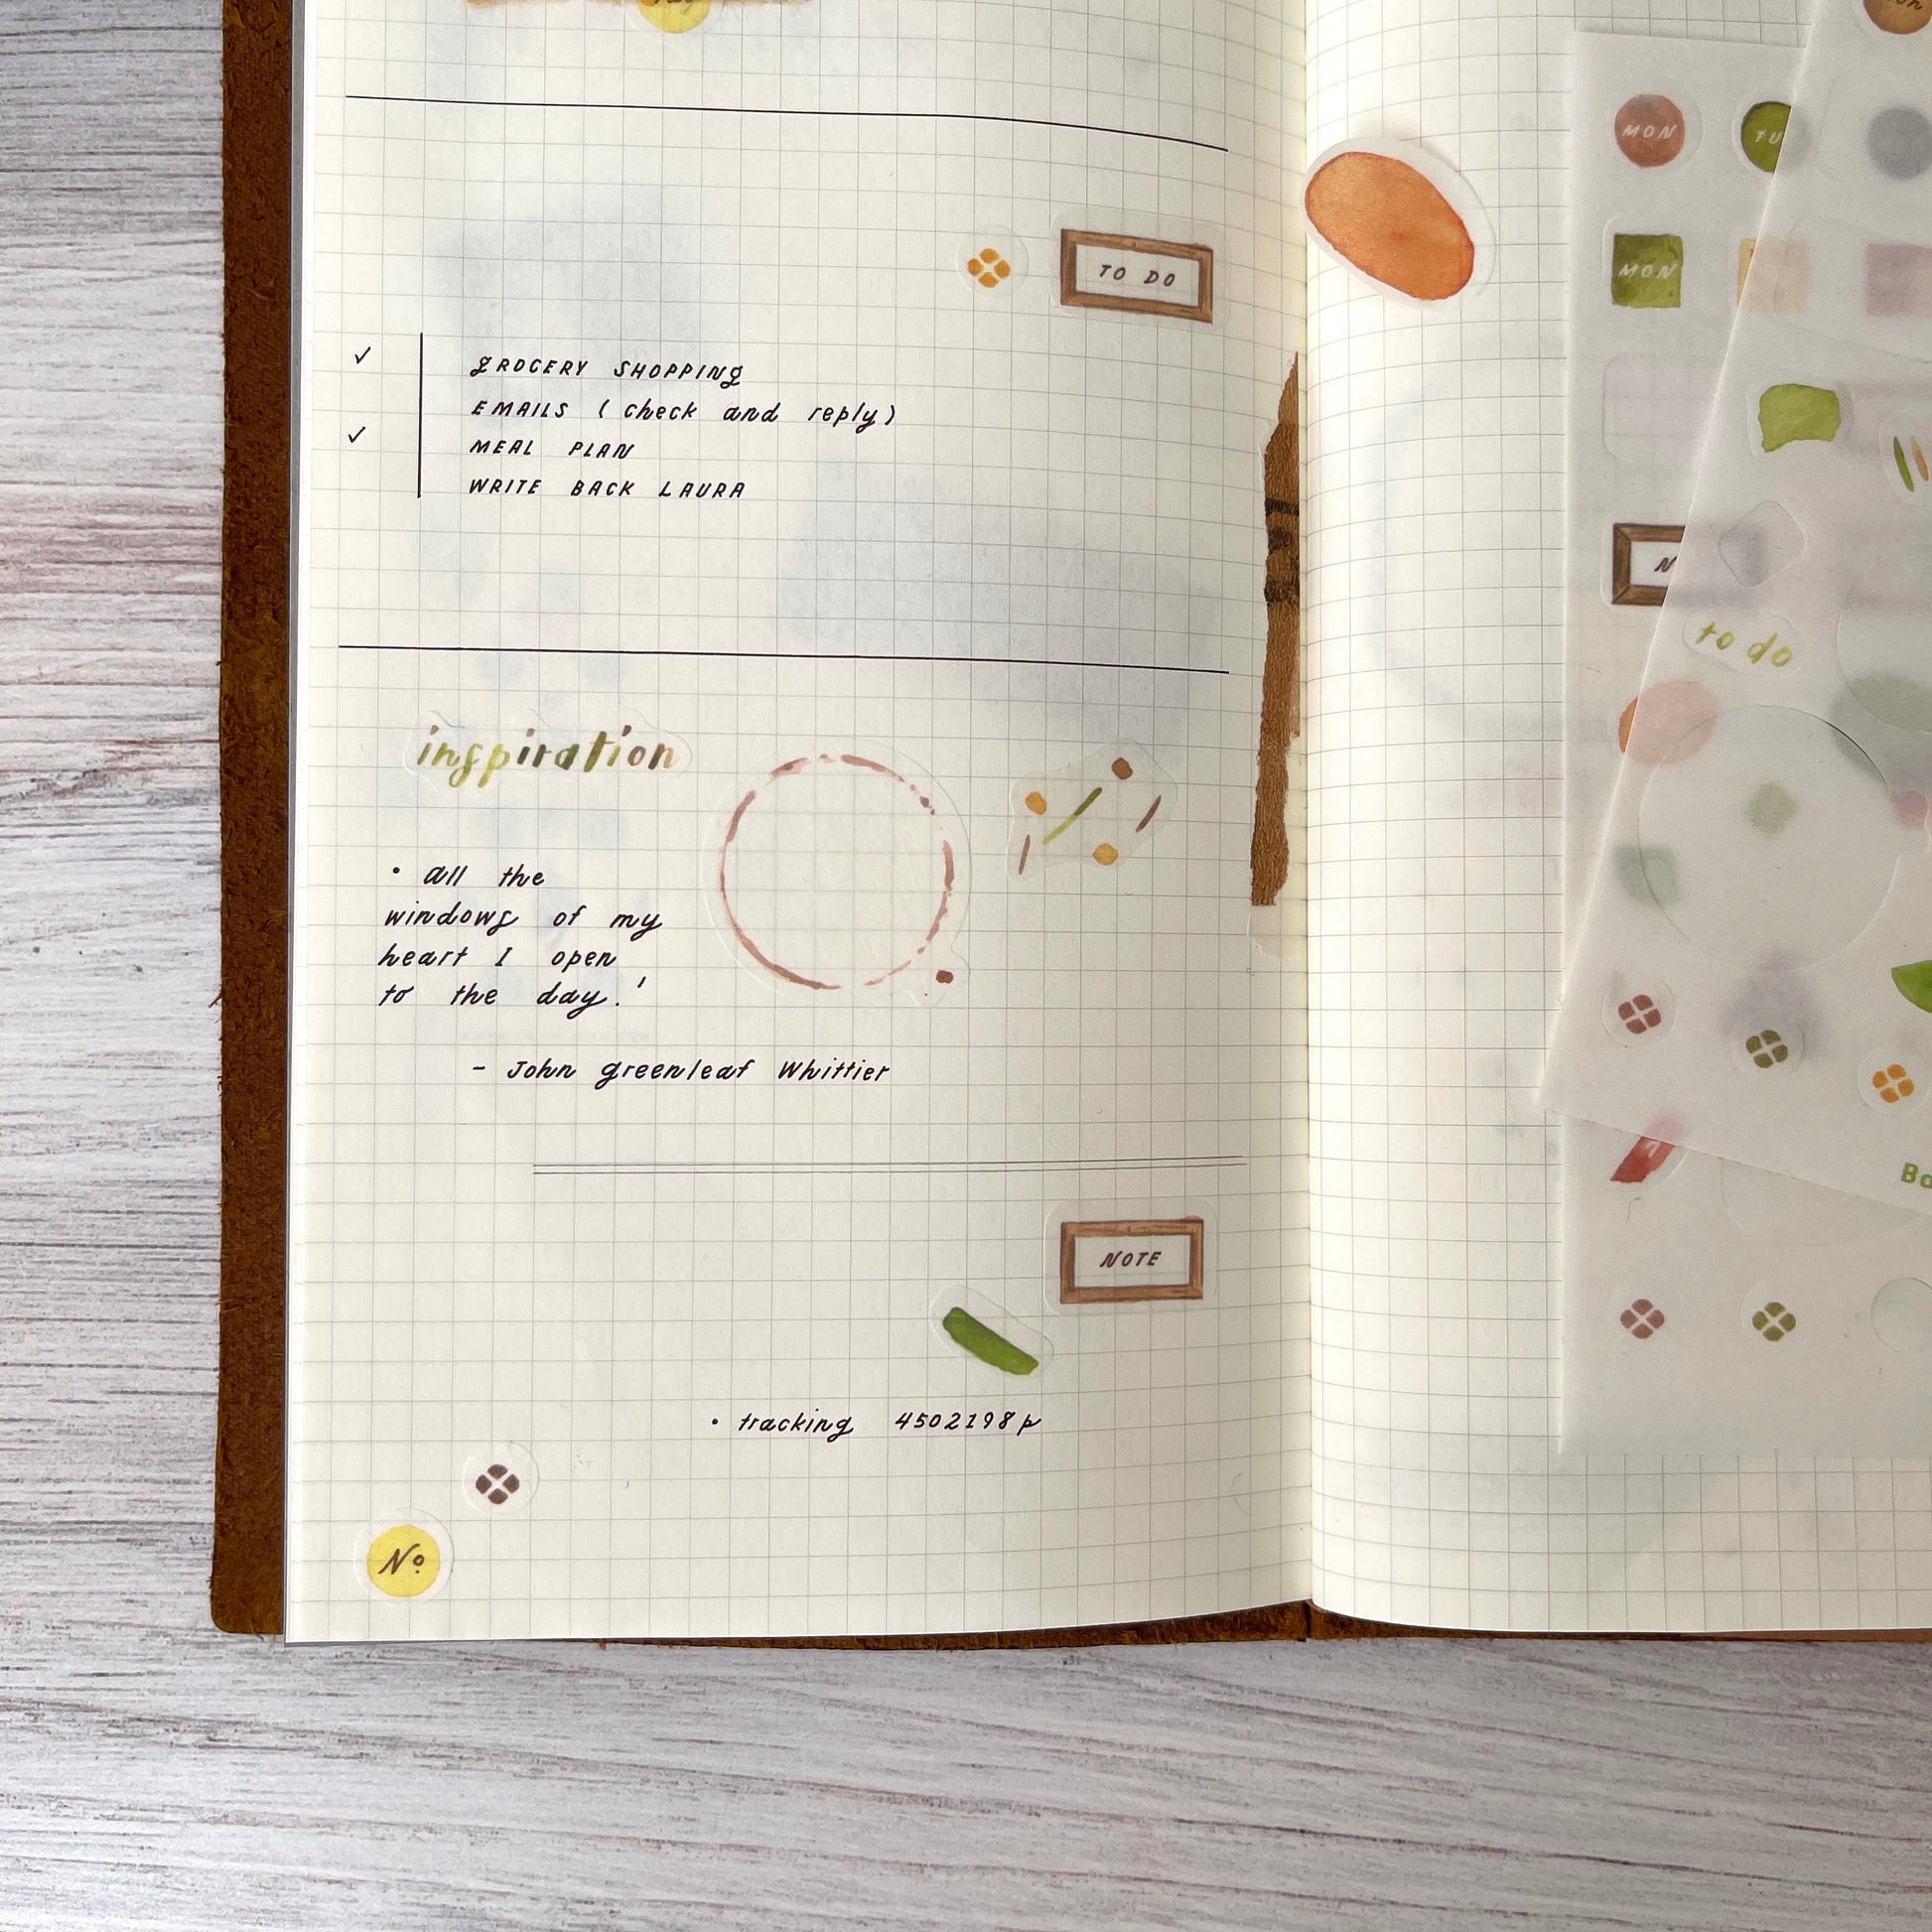 TO DO
✓ GROCERY SHOPPING
EMAILS (check and reply)
✓ MEAL PLAN
WRITE BACK LAURA
inspiration
• all the
windows of my
heart I open
to the day.'
- John greenleaf Whittier
NOTE
• tracking 4502198p
Nº
MON
TU
MON
N
to do
Ba